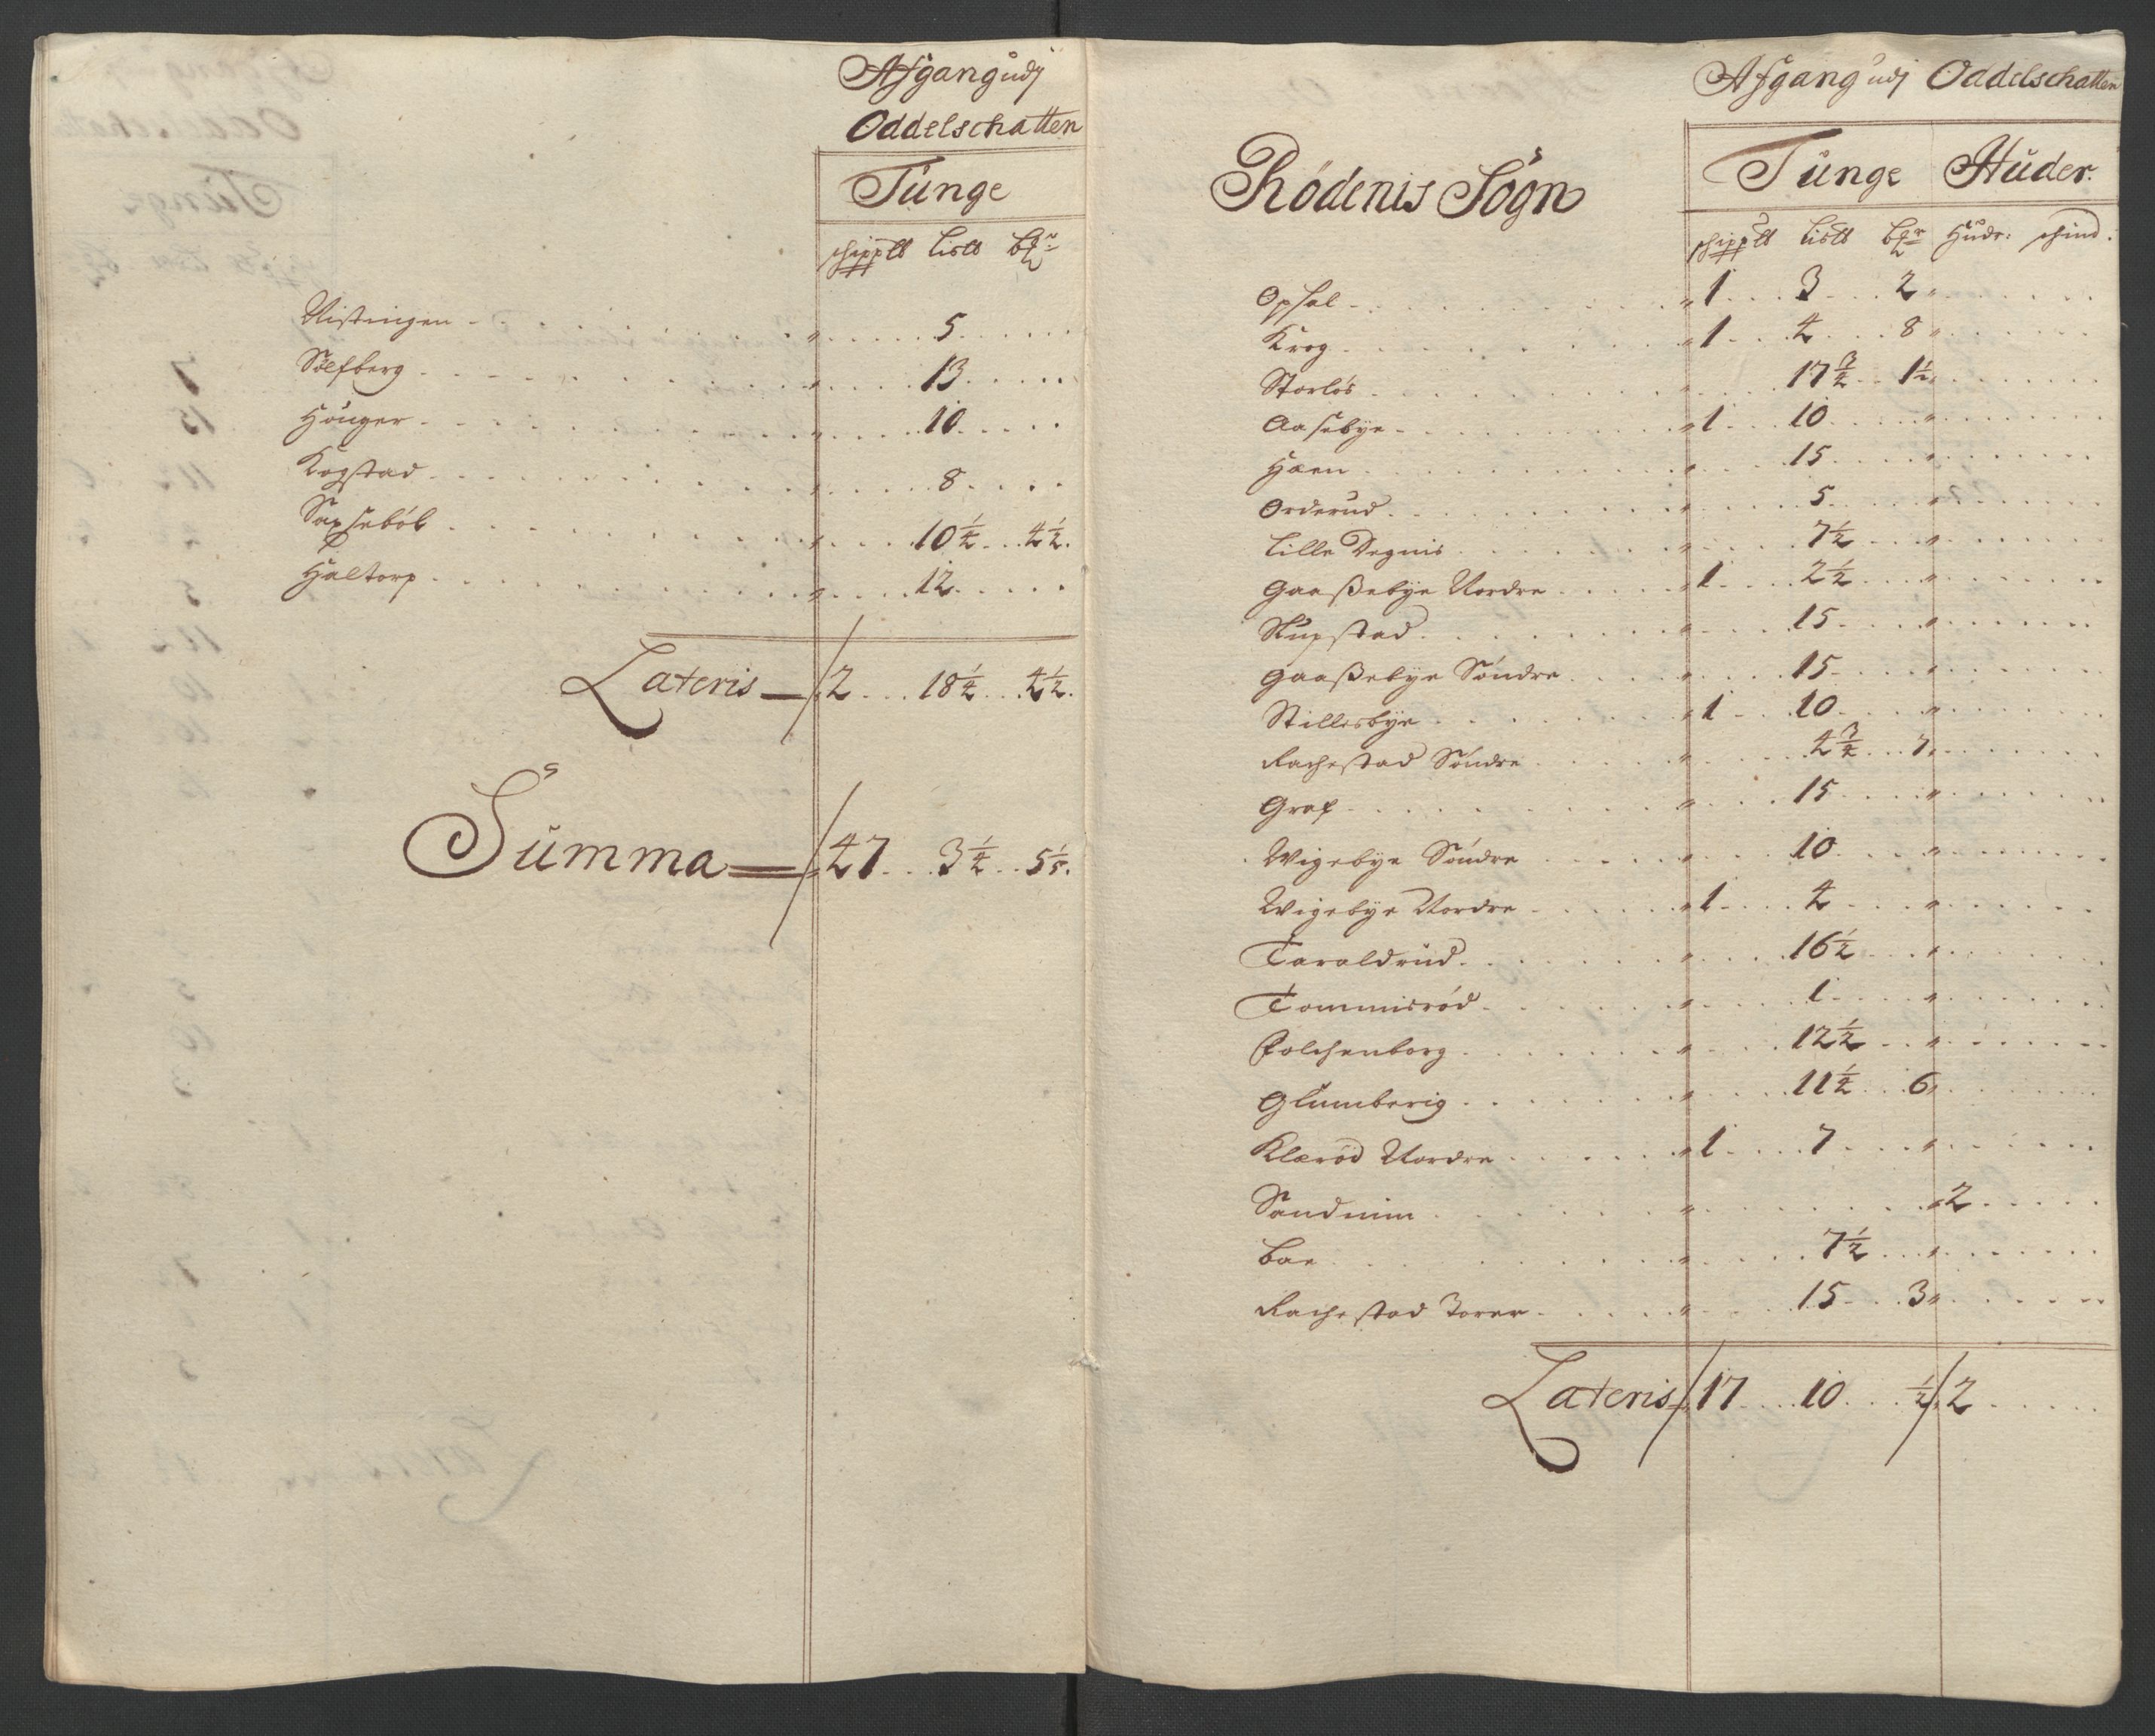 Afgang udj
Oddelschatten
Tunge
schippll lisll bf
Nistingen - 5
Sölfberg - 13
Höuger - 10
Kogstad - 8
Sæxeböl - 10 1/4 4 1/2
Haltorp - 12
Lateris 2 18 1/4 4 1/2
Summa 47 3 1/4 5 1/5
Afgang udj Oddelschatten
Rödenis Sogn
Tunge Huder
schippll lisll bf Hudr: schind:
Opsal 1 3 2
Krog 1 4 8
Storlös 17 3/4 1 1/2
Aasebye 1 10
Haen 15
Orderud 5
Lille Degnis 7 1/2
Gaaßebye Nordre 1 2 1/2
Stupstad 15
Gaaßebye Söndre 15
Stillesbye 1 10
Rachestad Söndre 4 3/4 7
Graf 15
Wigebye Söndre 10
Wigebye Nordre 1 4
Taraldrud 16 1/2
Tommisröd 1
Folchenborg 12 1/2
Glumberig 11 1/2 6
Klæröd Nordre 1 7
Sandnim 2
Boe 7 1/2
Rachestad Torer 15 3
Lateris 17 10 1/2 2